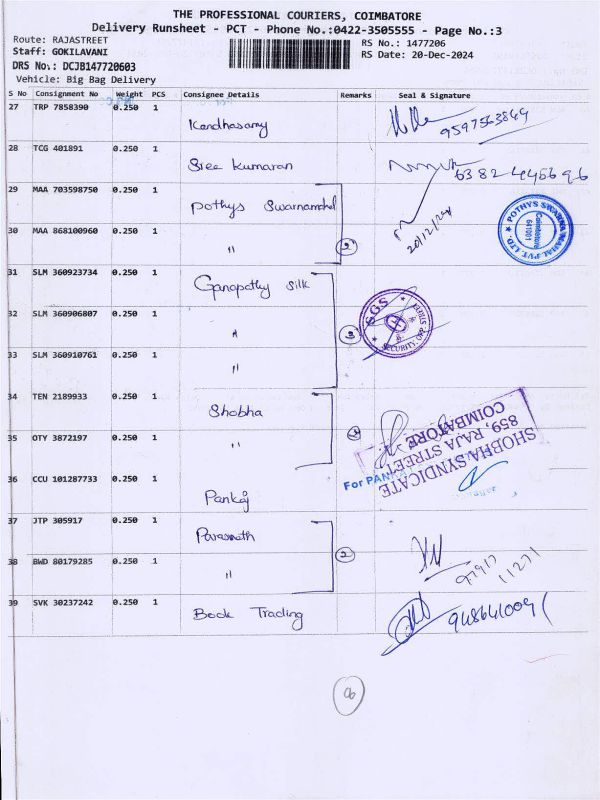 THE PROFESSIONAL COURIERS, COIMBATORE
Delivery Runsheet - PCT - Phone No.:0422-3505555 - Page No.:3
Route: RAJASTREET
RS No.: 1477206
Staff: GOKILAVANI
RS Date: 20-Dec-2024
DRS No.: DCJB147720603
Vehicle: Big Bag Delivery
S No Consignment No Weight PCS Consignee Details Remarks Seal & Signature
27 TRP 7858390 0.250 1 Kandhasamy 9597563864
28 TCG 401891 0.250 1 Sree Kumaran 6382445696
29 MAA 703598750 0.250 1 Pothys Swarnamahal
30 MAA 868100960 0.250 1 " 2 20/12/24
POTHYS SWARNA MAHAL PVT. LTD. Coimbatore 641001
31 SLM 360923734 0.250 1 Ganapathy Silk
32 SLM 360906807 0.250 1 " 3
SGS SECURITY
33 SLM 360910761 0.250 1 "
34 TEN 2189933 0.250 1 Shobha
35 OTY 3872197 0.250 1 "
SHOBHA SYNDICATE
859, RAJA STREET
COIMBATORE
For PANKAJ
36 CCU 101287733 0.250 1 Pankaj
37 JTP 305917 0.250 1 Parasnath
38 BWD 80179285 0.250 1 " 2 97917 11271
39 SVK 30237242 0.250 1 Book Trading